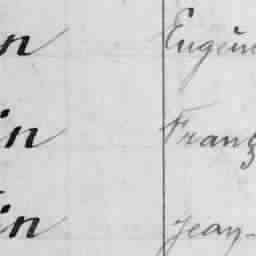 in Eugèn
in Franç
in Jean-